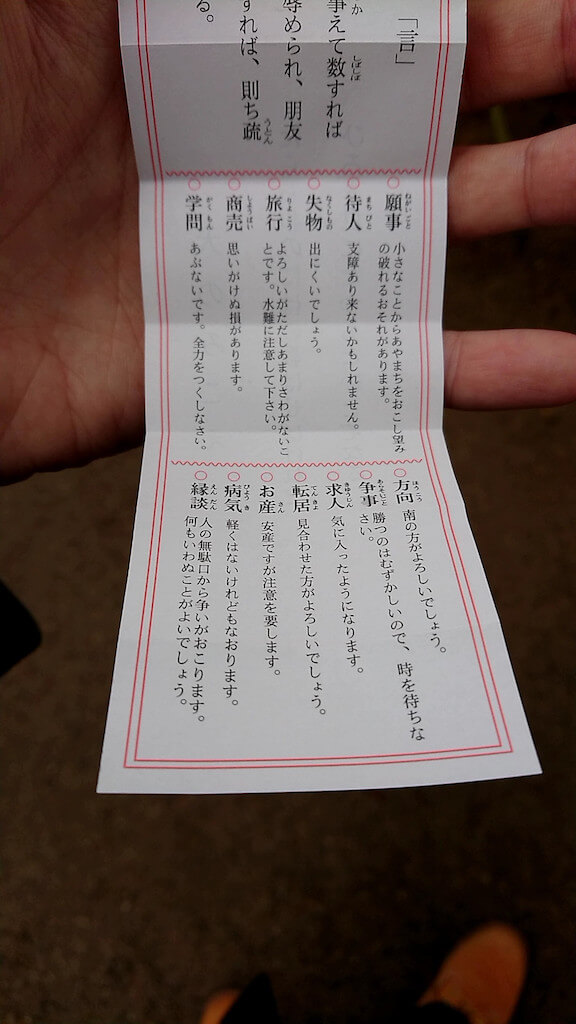 「言」
事えて数すれば
辱められ、朋友
すれば、則ち疏
る。
願事 小さなことからあやまちをおこし望み
の破れるおそれがあります。
待人 支障あり来ないかもしれません。
失物 出にくいでしょう。
旅行 よろしいがただしあまりさわがないこ
とです。水難に注意して下さい。
商売 思いがけぬ損があります。
学問 あぶないです。全力をつくしなさい。
方向 南の方がよろしいでしょう。
争事 勝つのはむずかしいので、時を待ちな
さい。
求人 気に入ったようになります。
転居 見合わせた方がよろしいでしょう。
お産 安産ですが注意を要します。
病気 軽くはないけれどもなおります。
縁談 人の無駄口から争いがおこります。
何もいわぬことがよいでしょう。